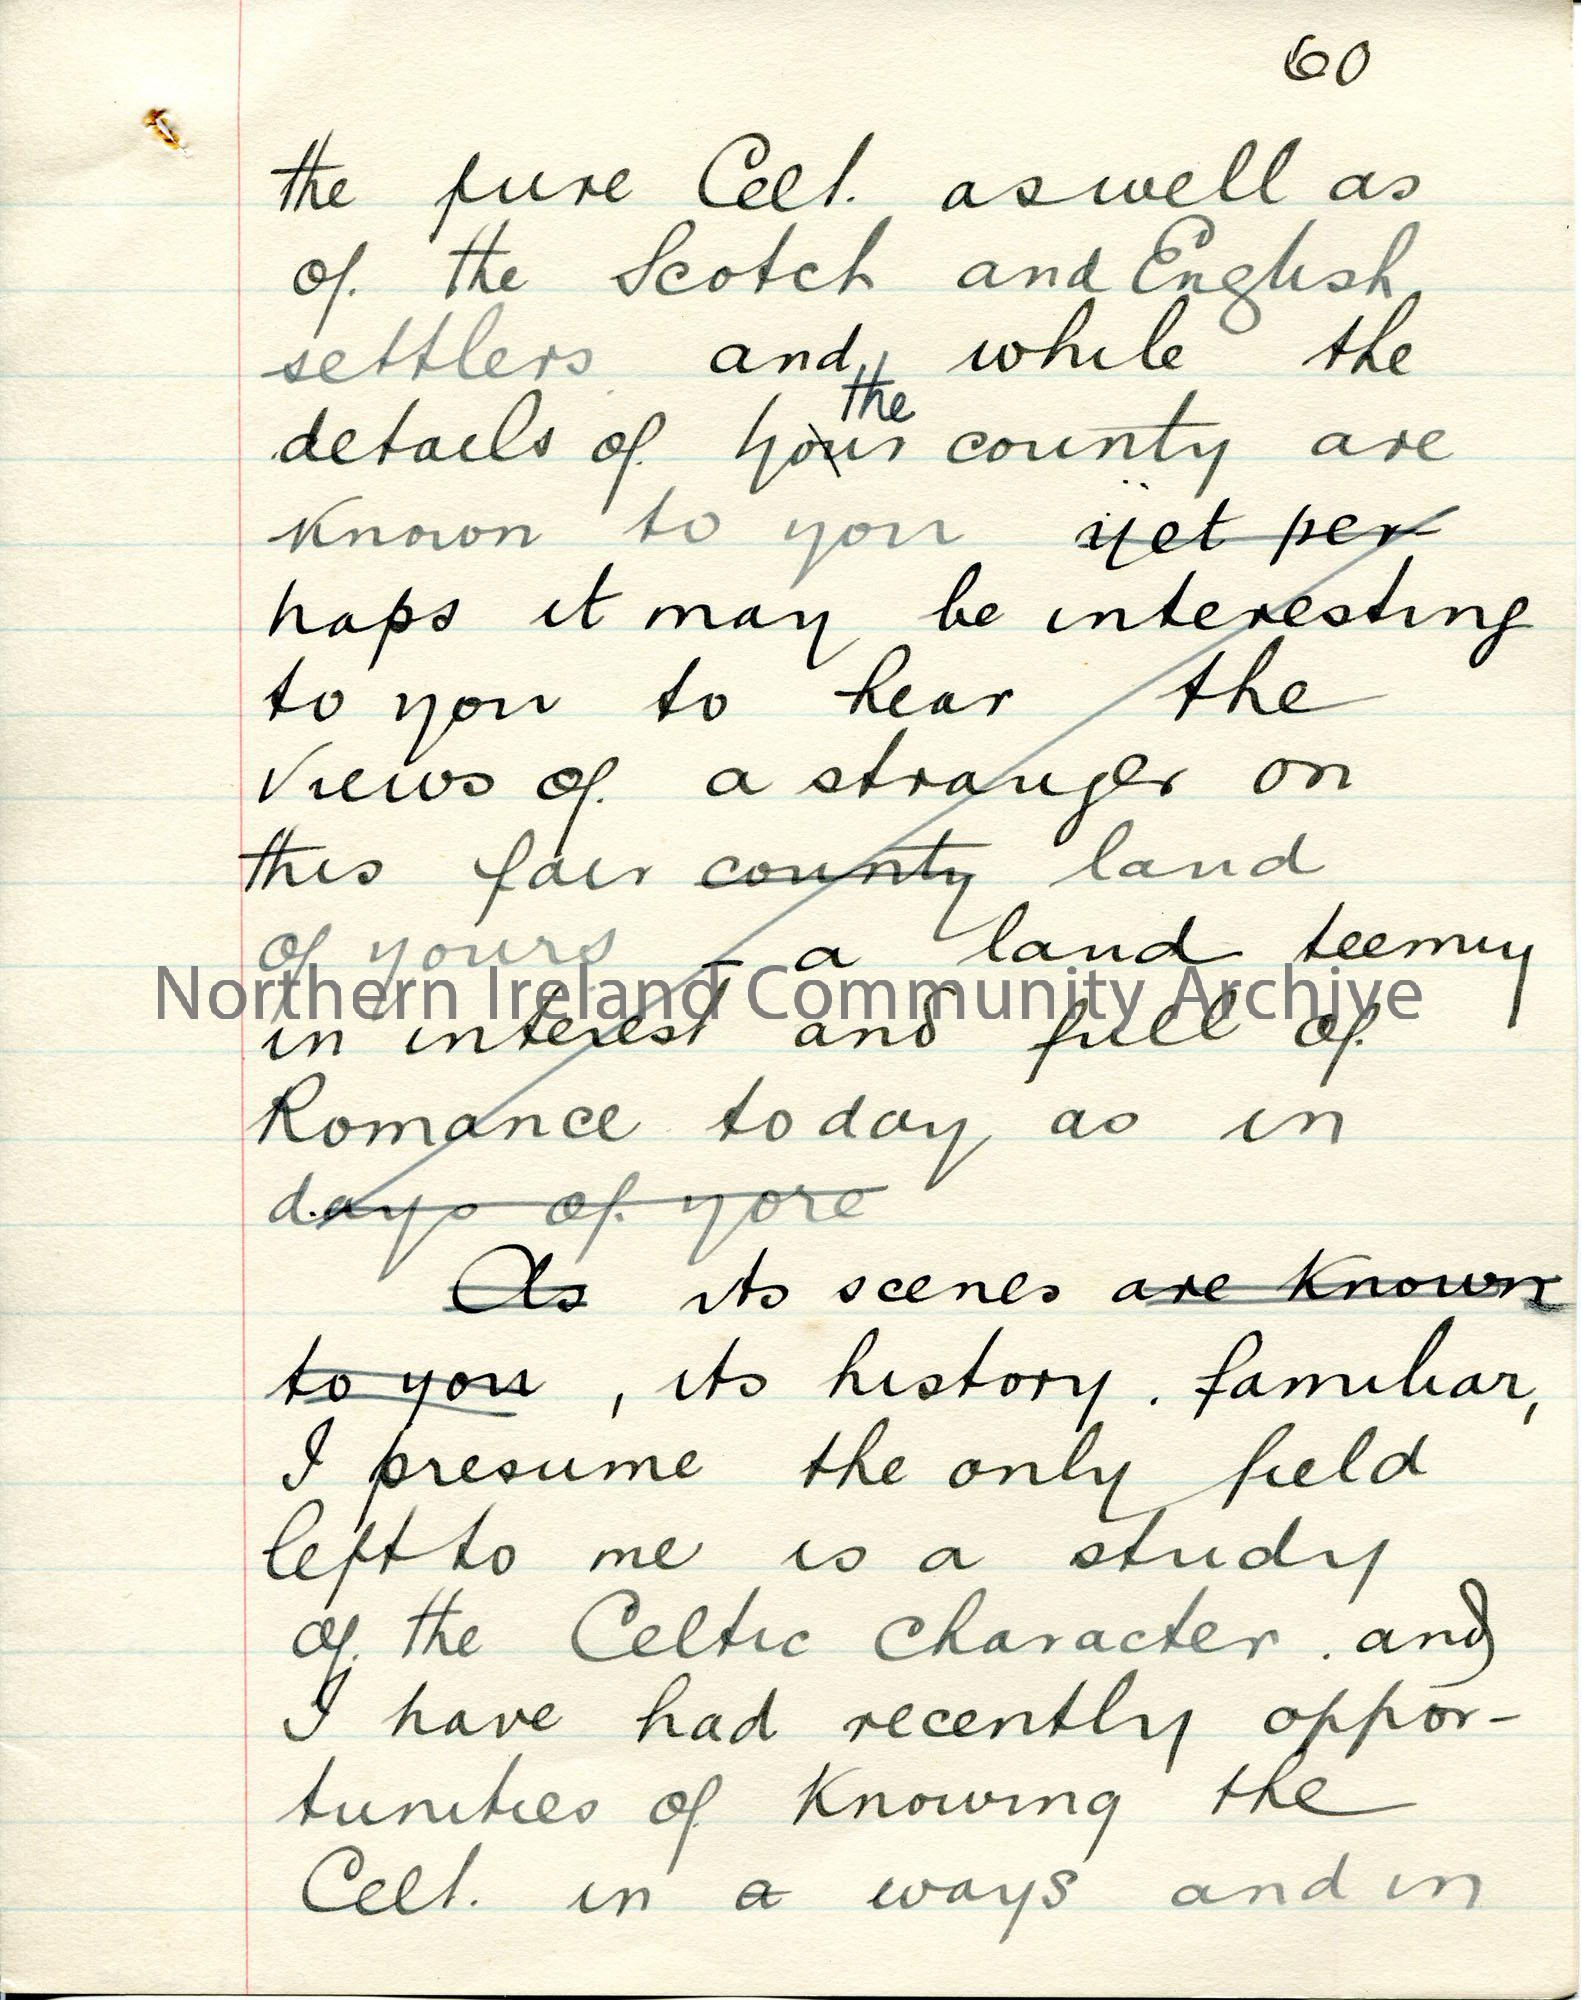 60
the pure Celt. aswell as
of the Scotch and English
settlers and, while the
the
details of your county are
known to you yet per
haps it may be interesting
to you to hear the
views of a stranger on
this fair county land
of yours – a land teeming
Northern Ireland Community Archive
in interest and full of
Romance today as in
days of yore
As its scenes are known
to you, its history. familiar,
I presume the only field
left to me is a study
of the Celtic character. and
I have had recently oppor-
tunities of knowing the
Celt. in a ways and in